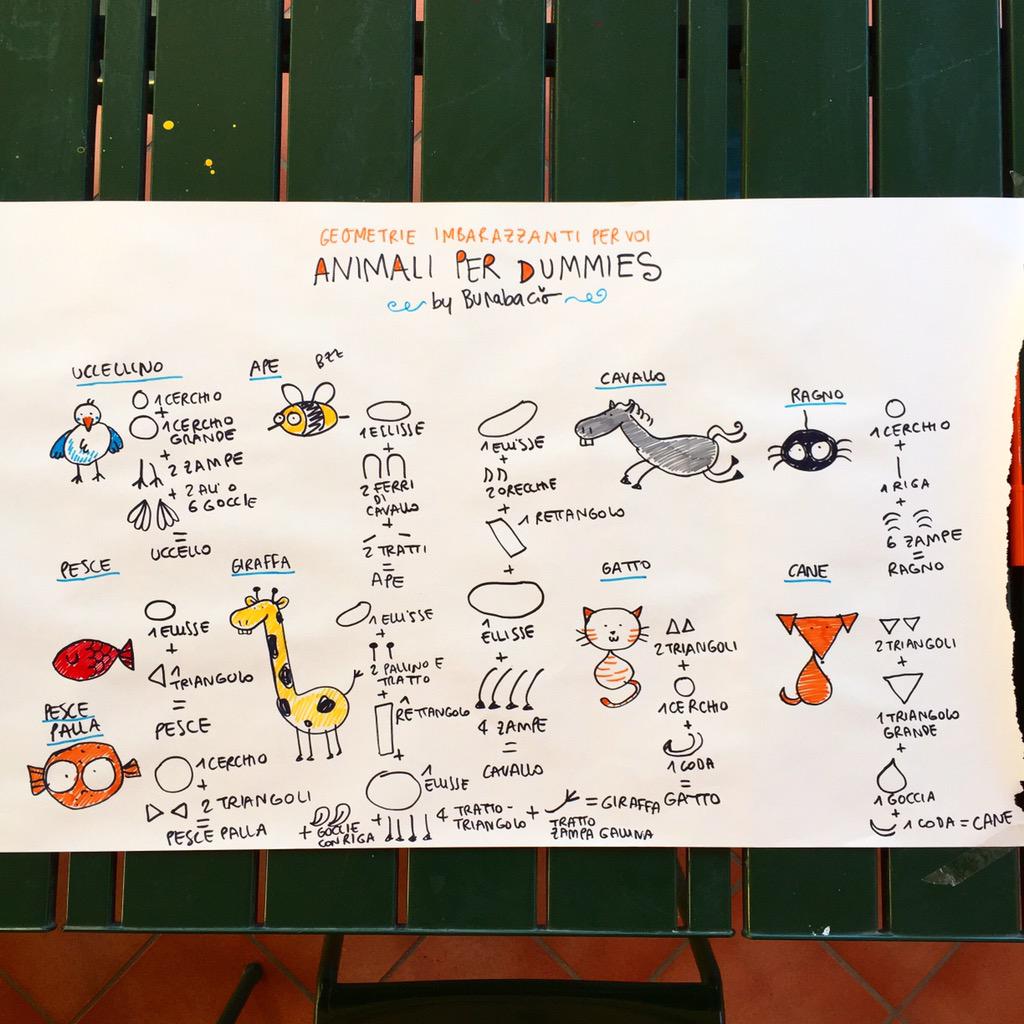 GEOMETRIE IMBARAZZANTI PER VOI
ANIMALI PER DUMMIES
by Burabacio
UCCELLINO
1 CERCHIO
+
1 CERCHIO
GRANDE
+
2 ZAMPE
+ 2 ALI O
6 GOCCIE
=
UCCELLO
APE
BZZ
1 ELLISSE
+
2 FERRI
DI
CAVALLO
+
2 TRATTI
=
APE
CAVALLO
1 ELLISSE
+
2 ORECCHIE
+
1 RETTANGOLO
+
1 ELLISSE
+
4 ZAMPE
=
CAVALLO
RAGNO
1 CERCHIO
+
1 RIGA
+
6 ZAMPE
=
RAGNO
PESCE
1 ELLISSE
+
1 TRIANGOLO
=
PESCE
PESCE
PALLA
1 CERCHIO
+
2 TRIANGOLI
=
PESCE PALLA
GIRAFFA
1 ELLISSE
+
2 PALLINO E
TRATTO
+
1 RETTANGOLO
+
1 ELLISSE
+ GOCCIE
CON RIGA
+
4 TRATTO-
TRIANGOLO
+
TRATTO
ZAMPA GALLINA
= GIRAFFA
GATTO
2 TRIANGOLI
+
1 CERCHIO
+
1 CODA
=
GATTO
CANE
2 TRIANGOLI
+
1 TRIANGOLO
GRANDE
+
1 GOCCIA
+
1 CODA = CANE